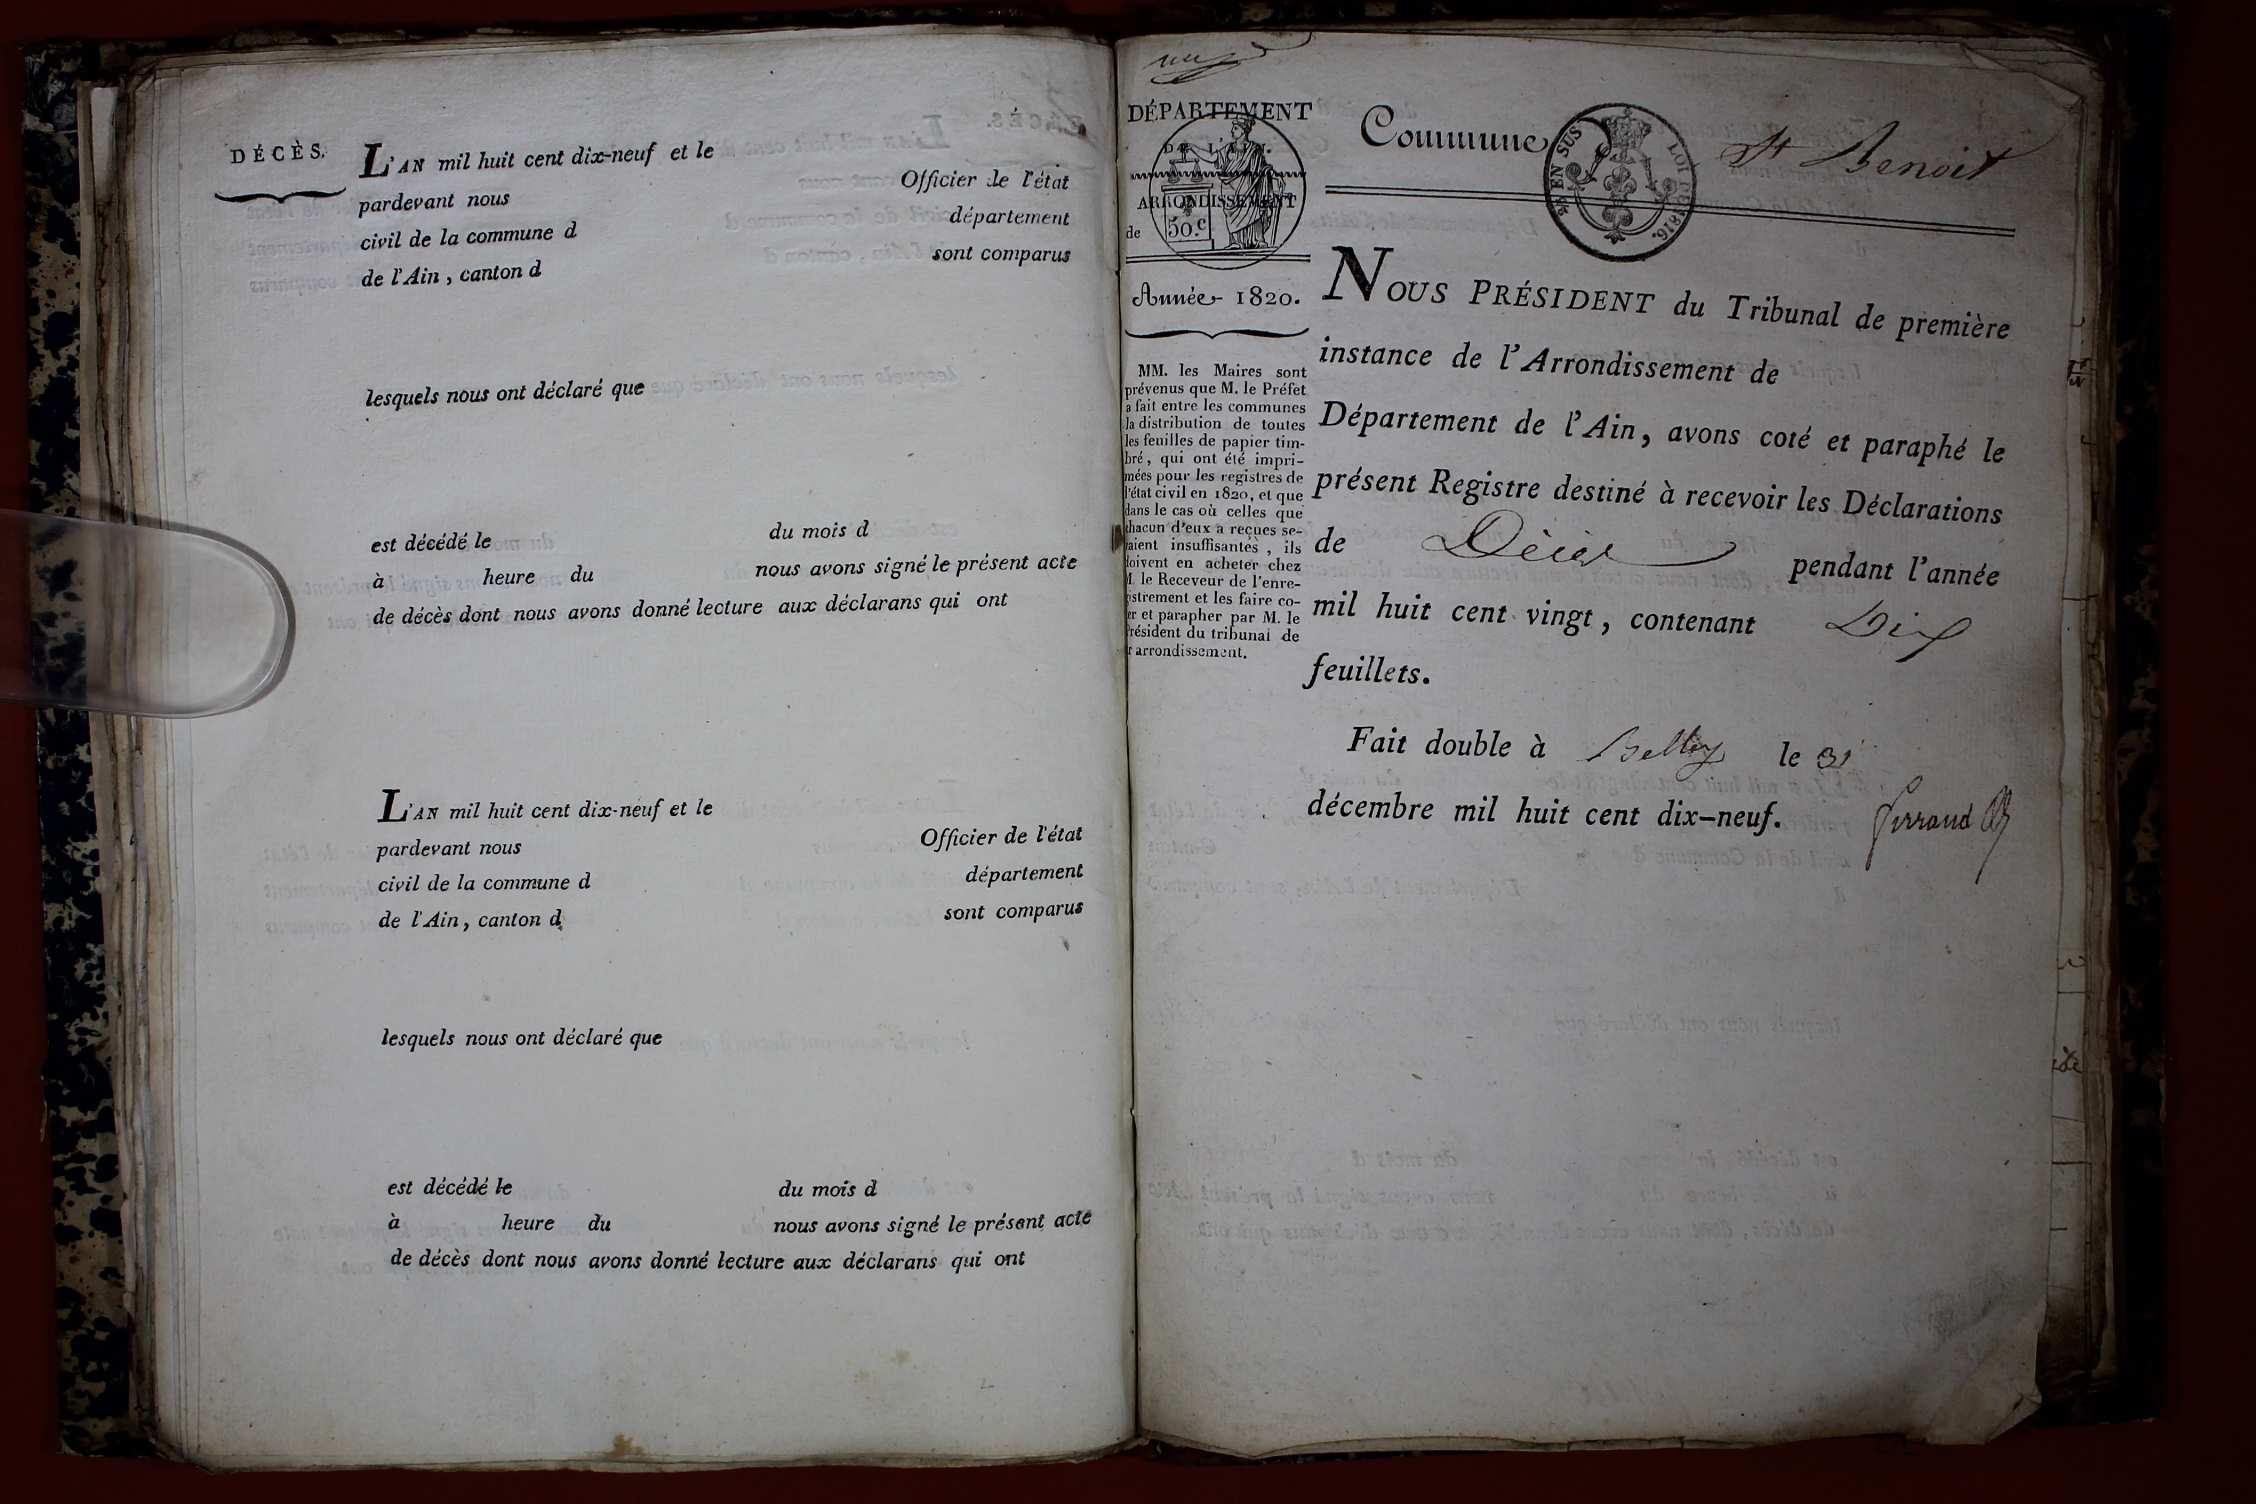 DÉCÈS.
L'AN mil huit cent dix-neuf et le
pardevant nous Officier de l'état
civil de la commune d département
de l'Ain, canton d sont comparus
lesquels nous ont déclaré que
est décédé le du mois d
à heure du nous avons signé le présent acte
de décès dont nous avons donné lecture aux déclarans qui ont
L'AN mil huit cent dix-neuf et le
pardevant nous Officier de l'état
civil de la commune d département
de l'Ain, canton d sont comparus
lesquels nous ont déclaré que
est décédé le du mois d
à heure du nous avons signé le présent acte
de décès dont nous avons donné lecture aux déclarans qui ont
DÉPARTEMENT
DE L'AIN.
ARRONDISSEMENT
de
50.c
Année 1820.
MM. les Maires sont
prévenus que M. le Préfet
a fait entre les communes
la distribution de toutes
les feuilles de papier tim-
bré, qui ont été impri-
mées pour les registres de
l'état civil en 1820, et que
dans le cas où celles que
chacun d'eux a reçues se-
raient insuffisantes, ils
doivent en acheter chez
M. le Receveur de l'enre-
gistrement et les faire co-
ter et parapher par M. le
Président du tribunal de
r arrondissement.
Commune St Benoit
EN SUS LOI DE 1816.
NOUS PRÉSIDENT du Tribunal de première
instance de l'Arrondissement de
Département de l'Ain, avons coté et paraphé le
présent Registre destiné à recevoir les Déclarations
de Décès pendant l'année
mil huit cent vingt, contenant Dix
feuillets.
Fait double à Belley le 31
décembre mil huit cent dix-neuf.